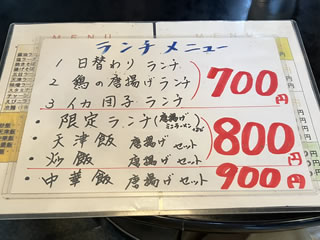 MENU MENU
ランチメニュー
1 日替わり ランチ
2 鶏の唐揚げランチ
3 イカ団子ランチ
700円
限定ランチ(唐揚げ
ミニラーメン
・天津飯 唐揚げセット
・炒飯 唐揚げセット
800円
中華飯 唐揚げセット 900円